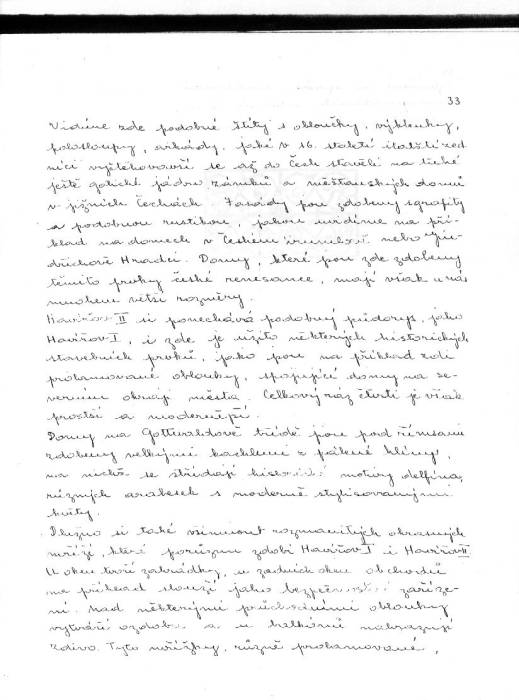 33
Vidíme zde podobné štíty s obloučky, výklenky,
polosloupy, arkády, jaké v 16. století italští zed
níci vystěhovavší se až do Čech stavěli na tiché
ještě gotické jádra zámků a měšťanských domů
v jižních Čechách. Fasády jsou zdobeny sgrafity
a podobnou rustikou, jakou vidíme na pří-
klad na domech v Českém Krumlově nebo Jin-
dřichově Hradci. Domy, které jsou zde zdobeny
těmito prvky české renesance, mají však u nás
mnohem větší rozměry.
Havířov II si ponechává podobný půdorys, jako
Havířov I, i zde je užito některých historických
stavebních prvků, jako jsou na příklad zdi
prolamované oblouky, spojující domy na se-
verním okraji města. Celkový ráz čtvrti je však
prostší a modernější.
Domy na Gottwaldově třídě jsou pod římsami
zdobeny velkými kachlemi z pálené hlíny,
na nichž se střídají historické motivy delfína,
různých arabesek s moderně stylisovanými
květy.
Dlužno si také všimnout rozmanitých okrasných
mříží, které porůznu zdobí Havířov I i Havířov II
U oken tvoří zahrádky, u zadních oken obchodů
na příklad slouží jako bezpečnostní zaříze-
ní. Nad některými průchodními oblouky
vytváří ozdobu a u balkónů nahrazují
zdivo. Tyto mřížky, různě prolamované,